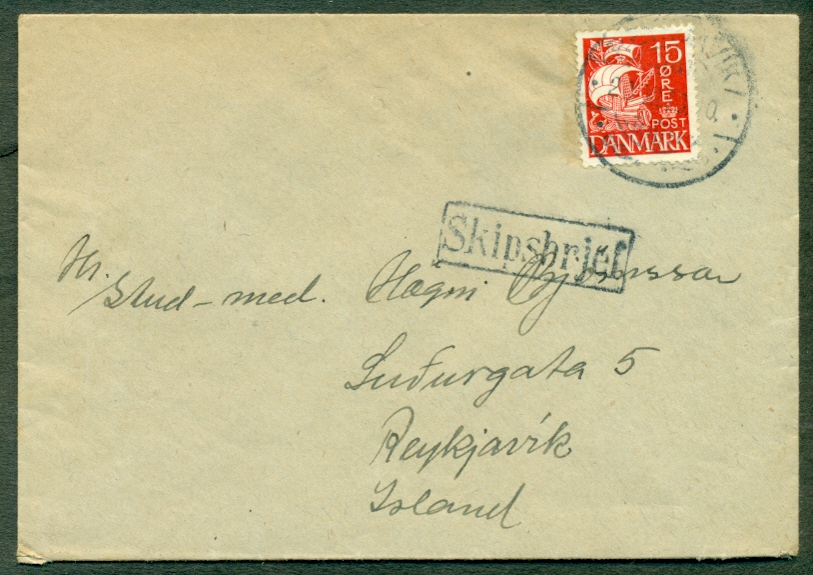 15
ØRE
POST
DANMARK
Skipsbrjef
Hr.
Stud-med. Högni Björnsson
Suðurgata 5
Reykjavík
Island